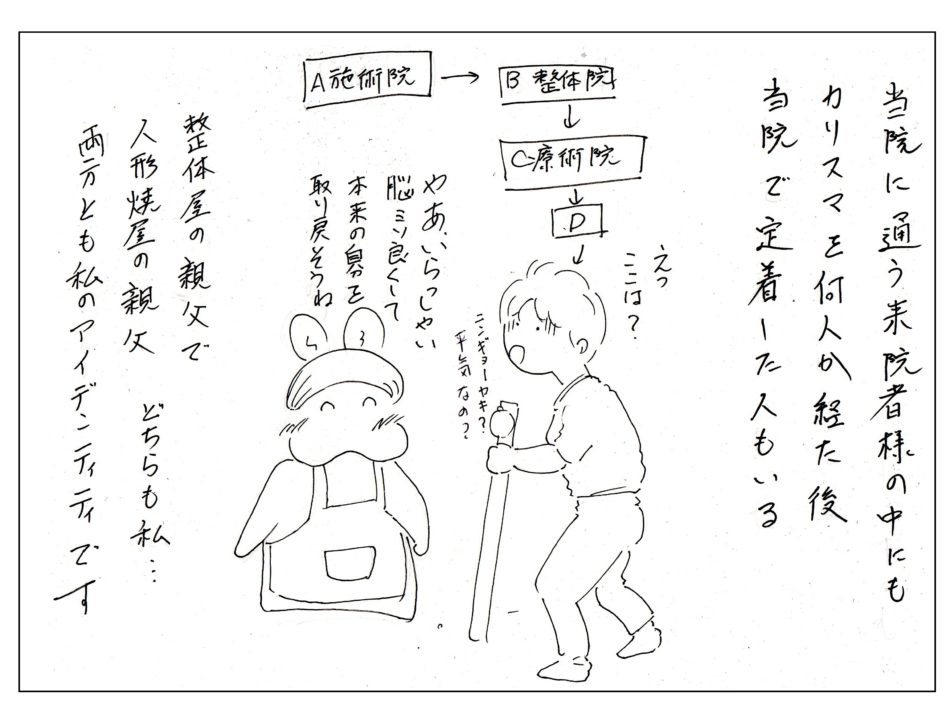 当院に通う来院者様の中にも
カリスマを何人か経た後
当院で定着した人もいる
A施術院
B 整体院
C療術院
D
えっ
ここは？
ニンギョーヤキ？
平気なの？
やあ、いらっしゃい
脳ミソ良くして
本来の自分を
取り戻そうね
整体屋の親父で
人形焼屋の親父
どちらも私…
両方とも私のアイデンティティです